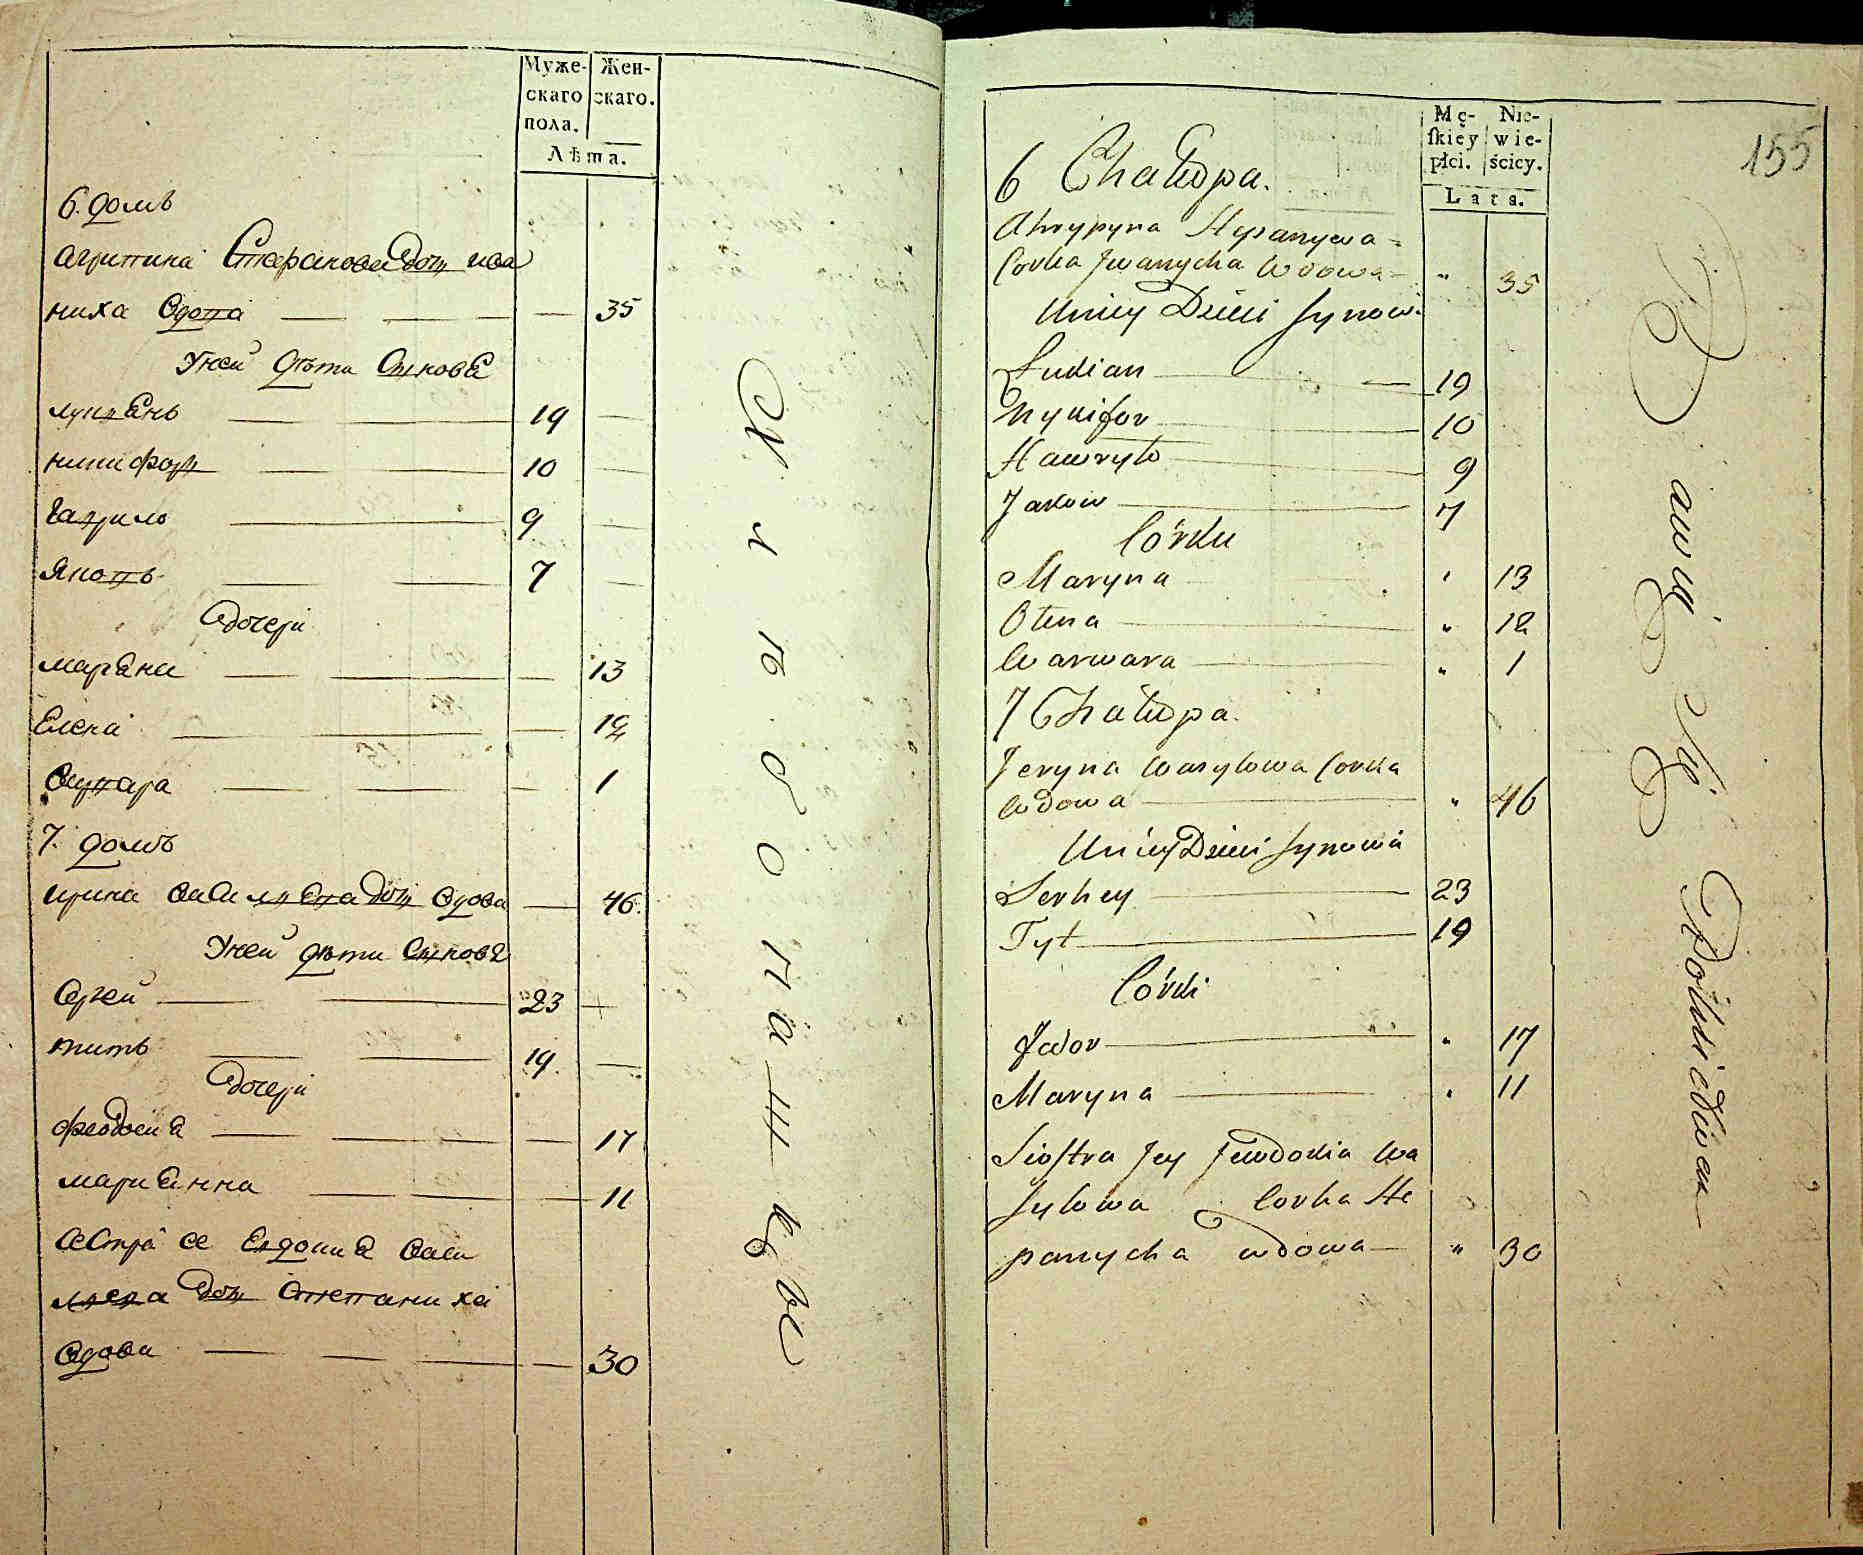 Муже-
скаго
пола.
Жен-
скаго.
Лѣта.
6. домъ
агрипина Стефанова дочь ива
ниха вдова 35
У ней дѣти Сынове
лукиянъ 19
никифоръ 10
гаврило 9
Яковъ 7
дочери
марѣна 13
Елена 12
варвара 1
7. домъ
ирина васильева дочь вдова 46.
У ней дѣти Сынове
Сергей 23
титъ 19.
дочери
феодосиа 17
марианна 11
сестра ее евдокиа васи
льева дочь степаниха
вдова 30
Mę-
ſkiey
płci.
Nie-
wie-
ściey.
Lata.
155
6 Chałupa.
Ahrypyna Stepanowa
Corka Iwanycha Wdowa „ 35
U niey Dzieci Synowi
Lukian 19
Nykifor 10
Hawryło 9
Jakow 7
Córki
Maryna „ 13
Ołena „ 12
Warwara „ 1
7 Chałupa.
Jeryna Wasylowa Corka
Wdowa „ 46
U niey Dzieci Synowie
Serhey 23
Tyt 19
Córki
„ 17
Maryna „ 11
Siostra Jey Jewdokia Wa
sylowa Corka Ste
panycha wdowa „ 30